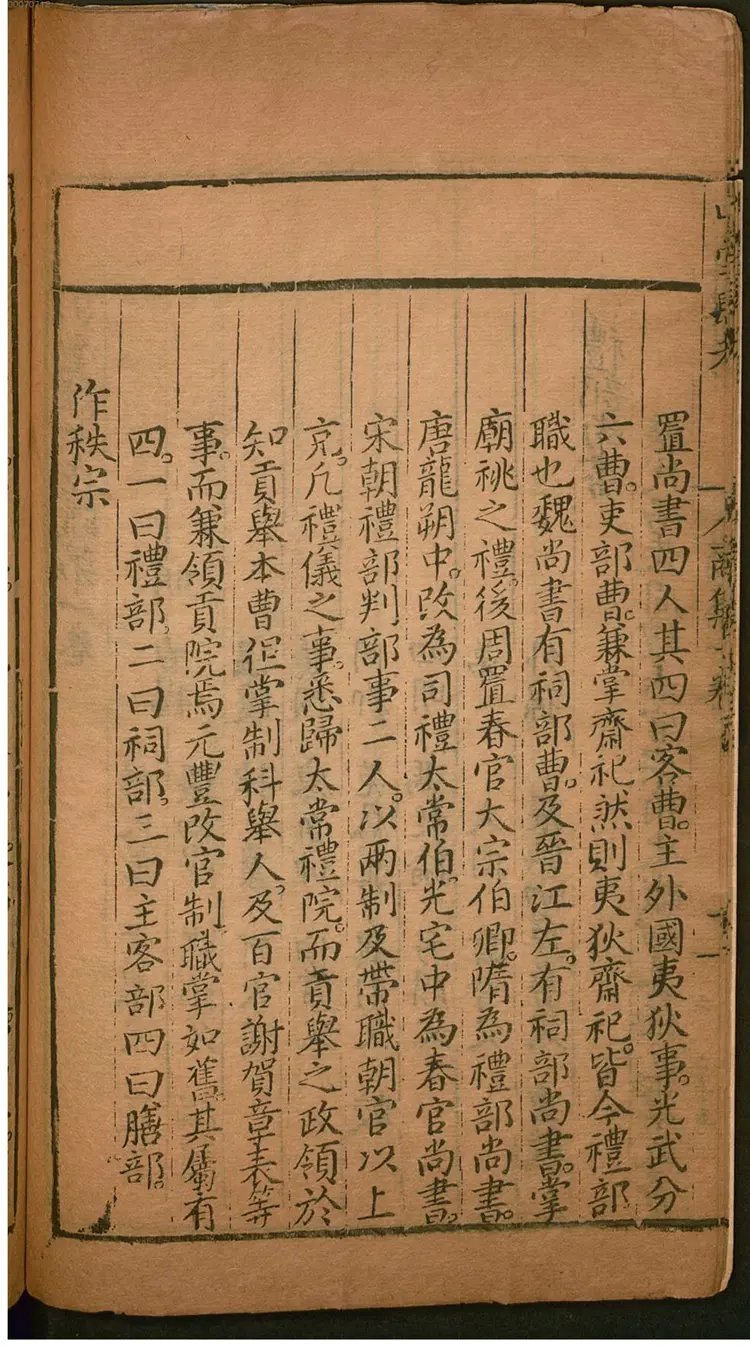 置尚書四人其四曰客曹。主外國夷狄事。光武分
六曹。吏部曹。兼掌齋祀然則夷狄齋祀。皆今禮部
職也魏尚書有祠部曹。及晉江左。有祠部尚書。掌
廟祧之禮。後周置春官大宗伯卿。隋為禮部尚書。
唐龍朔中。改為司禮太常伯。光宅中為春官尚書。
宋朝禮部判部事二人。以兩制及帶職朝官以上
充。凡禮儀之事。悉歸太常禮院。而貢舉之政領於
知貢舉本曹但掌制科舉人。及百官謝賀章表等
事。而兼領貢院焉元豐改官制職掌如舊其屬有
四。一曰禮部。二曰祠部。三曰主客部四曰膳部。
作秩宗
20070742